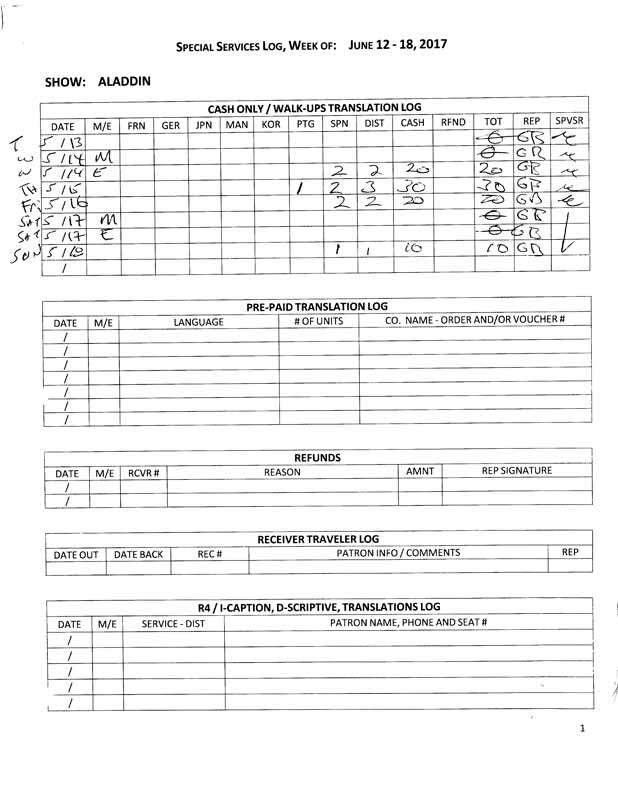 SPECIAL SERVICES LOG, WEEK OF: JUNE 12 - 18, 2017
SHOW: ALADDIN
CASH ONLY / WALK-UPS TRANSLATION LOG
DATE M/E FRN GER JPN MAN KOR PTG SPN DIST CASH RFND TOT REP SPVSR
T 5 / 13 0 GR
W 5 / 14 M 0 GR
W 5 / 14 E 2 2 20 20 GR
TH 5 / 15 1 2 3 30 30 GR
Fri 5 / 16 2 2 20 20 GR
SAT 5 / 17 M 0 GR
SAT 5 / 17 E 0 GR
SUN 5 / 1 1 10 10 GR
/
PRE-PAID TRANSLATION LOG
DATE M/E LANGUAGE # OF UNITS CO. NAME - ORDER AND/OR VOUCHER #
/
/
/
/
/
/
/
REFUNDS
DATE M/E RCVR # REASON AMNT REP SIGNATURE
/
/
RECEIVER TRAVELER LOG
DATE OUT DATE BACK REC # PATRON INFO / COMMENTS REP
R4 / I-CAPTION, D-SCRIPTIVE, TRANSLATIONS LOG
DATE M/E SERVICE - DIST PATRON NAME, PHONE AND SEAT #
/
/
/
/
/
1